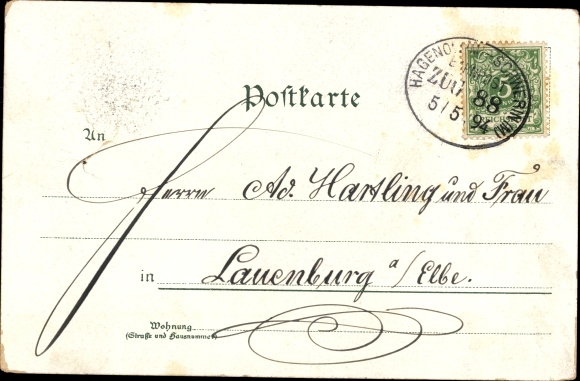 Postkarte
ZUG 88
5/5 94
5
An
Herrn Ad. Hartling und Frau
in Lauenburg a/Elbe.
Wohnung
(Straße und Hausnummer)